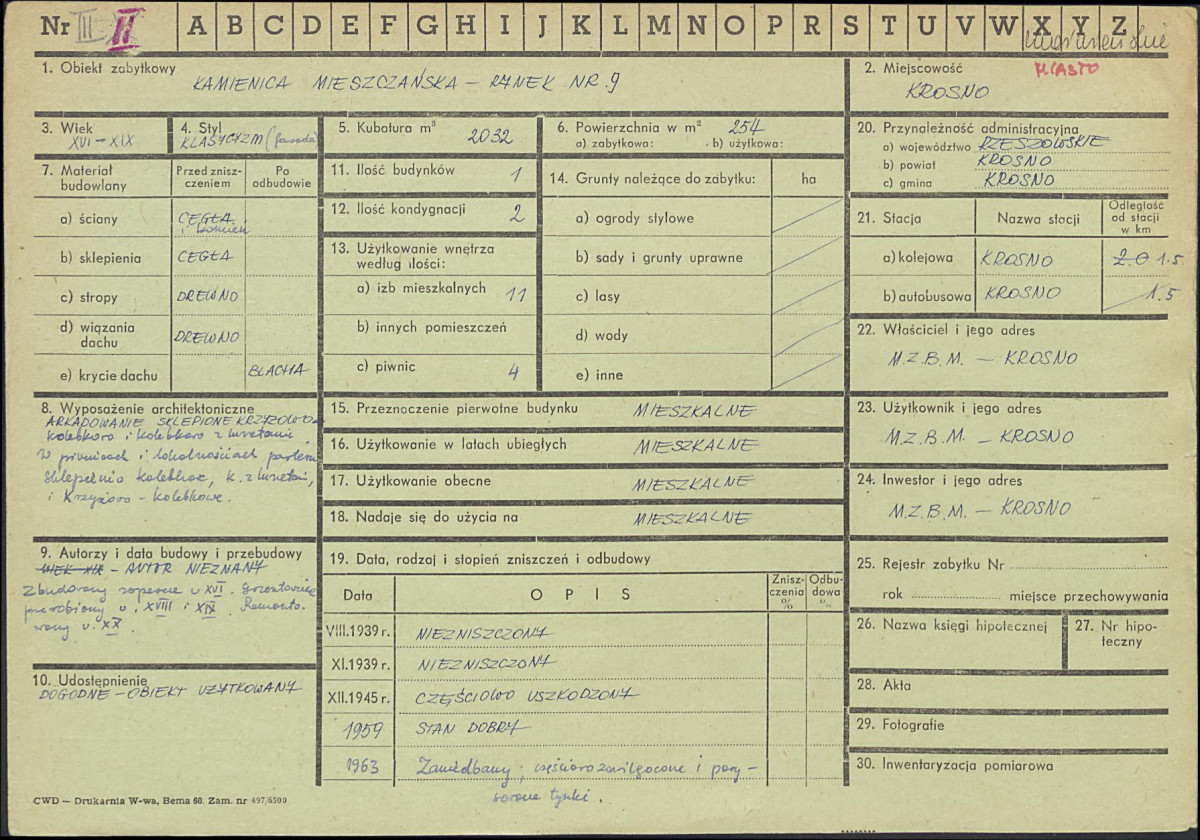 Nr III II A B C D E F G H I J K L M N O P R S T U V W X Y Z
MIASTO
1. Obiekt zabytkowy
KAMIENICA MIESZCZAŃSKA – RYNEK NR. 9
2. Miejscowość
KROSNO
3. Wiek
XVI – XIX
4. Styl
KLASYCYZM (fasada)
5. Kubatura m³ 2032
6. Powierzchnia w m² 254
a) zabytkowa: b) użytkowa:
20. Przynależność administracyjna
a) województwo RZESZOWSKIE
b) powiat KROSNO
c) gmina KROSNO
7. Materiał budowlany
Przed znisz-
czeniem
Po
odbudowie
a) ściany CEGŁA
i kamień
b) sklepienia CEGŁA
c) stropy DREWNO
d) wiązania
dachu DREWNO
e) krycie dachu BLACHA
11. Ilość budynków 1
12. Ilość kondygnacji 2
13. Użytkowanie wnętrza
według ilości:
a) izb mieszkalnych 11
b) innych pomieszczeń
c) piwnic 4
14. Grunty należące do zabytku: ha
a) ogrody stylowe
b) sady i grunty uprawne
c) lasy
d) wody
e) inne
21. Stacja Nazwa stacji Odległość
od stacji
w km
a) kolejowa KROSNO 2.0 1.5
b) autobusowa KROSNO 1.5
22. Właściciel i jego adres
M.Z.B.M. – KROSNO
8. Wyposażenie architektoniczne
ARKADOWANIE SKLEPIONE KRZYŻOWO-
kolebkowo i kolebkowo z lunetami
W piwnicach i lokalnościach parteru
sklepienia kolebkowe, k. z lunetami,
i Krzyżowo - kolebkowe.
15. Przeznaczenie pierwotne budynku MIESZKALNE
16. Użytkowanie w latach ubiegłych MIESZKALNE
17. Użytkowanie obecne MIESZKALNE
18. Nadaje się do użycia na MIESZKALNE
23. Użytkownik i jego adres
M.Z.B.M. – KROSNO
24. Inwestor i jego adres
M.Z.B.M. – KROSNO
9. Autorzy i data budowy i przebudowy
WIEK XIX – AUTOR NIEZNANY
Zbudowany w XVI. Gruntownie
przerobiony w. XVIII i XIX. Remonto-
wany w. XX.
10. Udostępnienie
DOGODNE – OBIEKT UŻYTKOWANY
19. Data, rodzaj i stopień zniszczeń i odbudowy
Data OPIS Znisz-
czenia
% Odbu-
dowa
%
VIII.1939 r. NIEZNISZCZONY
XI.1939 r. NIEZNISZCZONY
XII.1945 r. CZĘŚCIOWO USZKODZONY
1959 STAN DOBRY
1963 Zaniedbany, częściowo zawilgocone i pory-
sowane tynki.
25. Rejestr zabytku Nr
rok miejsce przechowywania
26. Nazwa księgi hipotecznej
27. Nr hipo-
teczny
28. Akta
29. Fotografie
30. Inwentaryzacja pomiarowa
CWD — Drukarnia W-wa, Bema 60. Zam. nr 497/6500